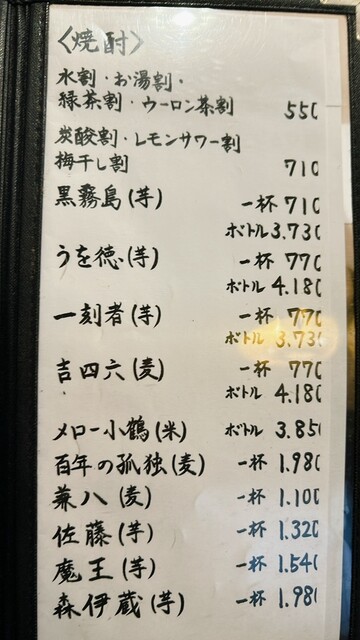 〈焼酎〉
水割・お湯割・
緑茶割・ウーロン茶割 550
炭酸割・レモンサワー割
梅干し割 710
黒霧島(芋) 一杯 710
ボトル 3.730
うを徳(芋) 一杯 770
ボトル 4.180
一刻者(芋) 一杯 770
ボトル 3.730
吉四六(麦) 一杯 770
ボトル 4.180
メロー小鶴(米) ボトル 3.850
百年の孤独(麦) 一杯 1.980
兼八(麦) 一杯 1.100
佐藤(芋) 一杯 1.320
魔王(芋) 一杯 1.540
森伊蔵(芋) 一杯 1.980